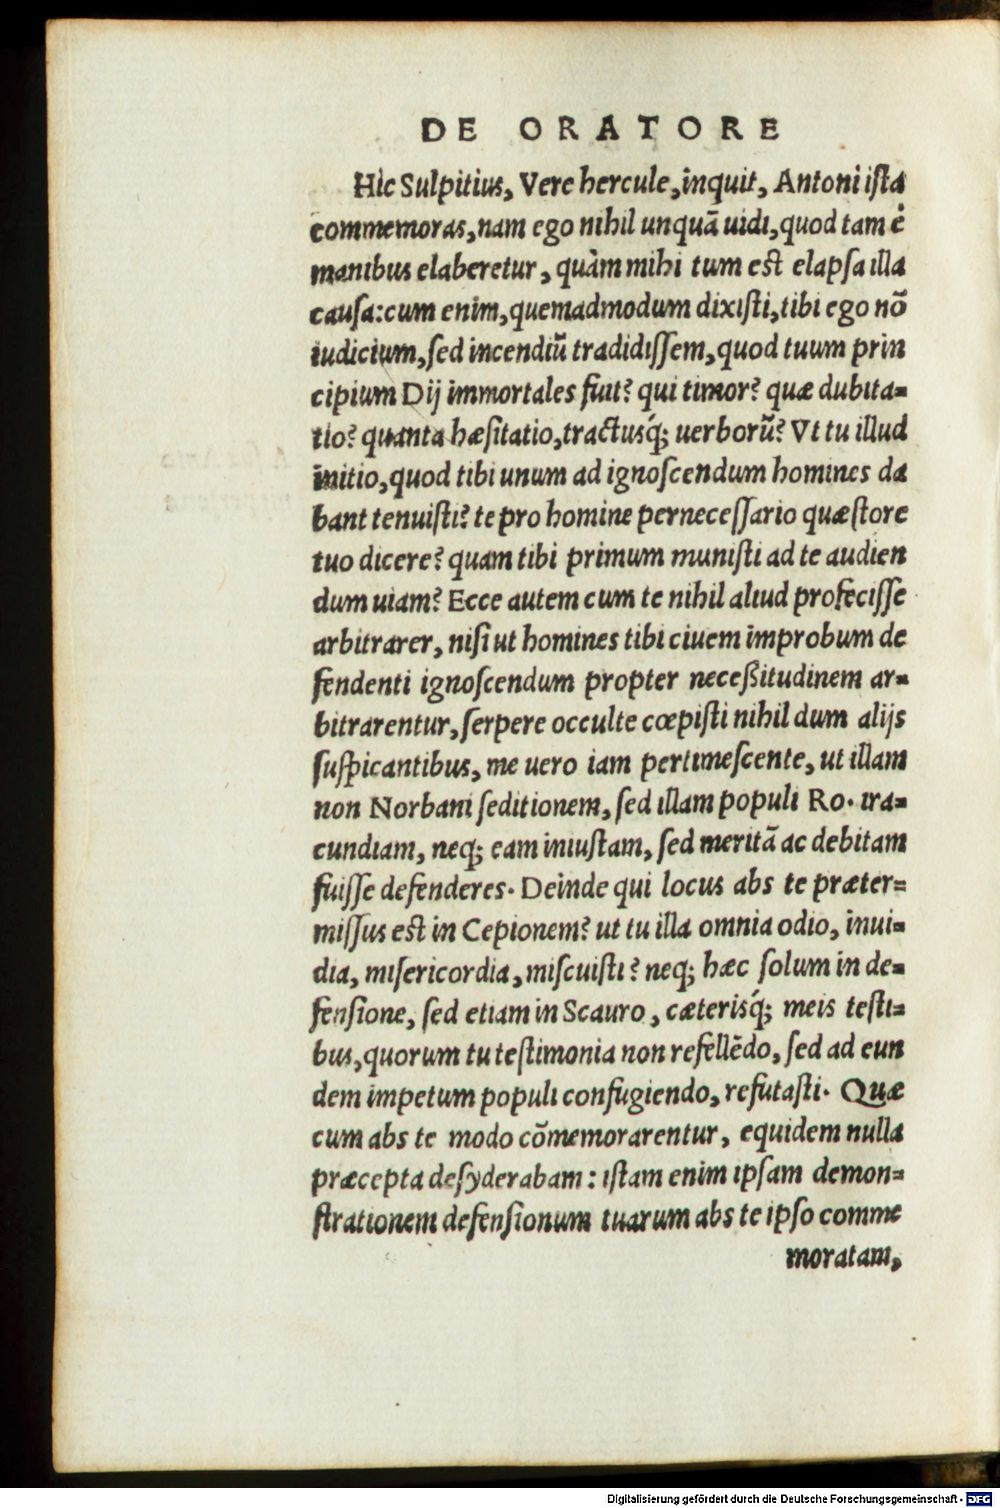 DE ORATORE
Hic Sulpitius, Vere hercule, inquit, Antoni ista
commemoras, nam ego nihil unquā uidi, quod tam è
manibus elaberetur, quàm mihi tum est elapsa illa
causa: cum enim, quemadmodum dixisti, tibi ego nō
iudicium, sed incendiū tradidissem, quod tuum prin
cipium Dij immortales fuit? qui timor? quæ dubita-
tio? quanta hæsitatio, tractusq́; uerborū? Vt tu illud
initio, quod tibi unum ad ignoscendum homines da
bant tenuisti? te pro homine pernecessario quæstore
tuo dicere? quam tibi primum munisti ad te audien
dum uiam? Ecce autem cum te nihil aliud profecisse
arbitrarer, nisi ut homines tibi ciuem improbum de
fendenti ignoscendum propter neceßitudinem ar-
bitrarentur, serpere occulte cœpisti nihil dum alijs
suspicantibus, me uero iam pertimescente, ut illam
non Norbani seditionem, sed illam populi Ro. ira-
cundiam, neq; eam iniustam, sed meritā ac debitam
fuisse defenderes. Deinde qui locus abs te præter-
missus est in Cepionem? ut tu illa omnia odio, inui-
dia, misericordia, miscuisti? neq; hæc solum in de-
fensione, sed etiam in Scauro, cæterisq́; meis testi-
bus, quorum tu testimonia non refellēdo, sed ad eun
dem impetum populi confugiendo, refutasti. Quæ
cum abs te modo cōmemorarentur, equidem nulla
præcepta desyderabam: istam enim ipsam demon-
strationem defensionum tuarum abs te ipso comme
moratam,
Digitalisierung gefördert durch die Deutsche Forschungsgemeinschaft - DFG